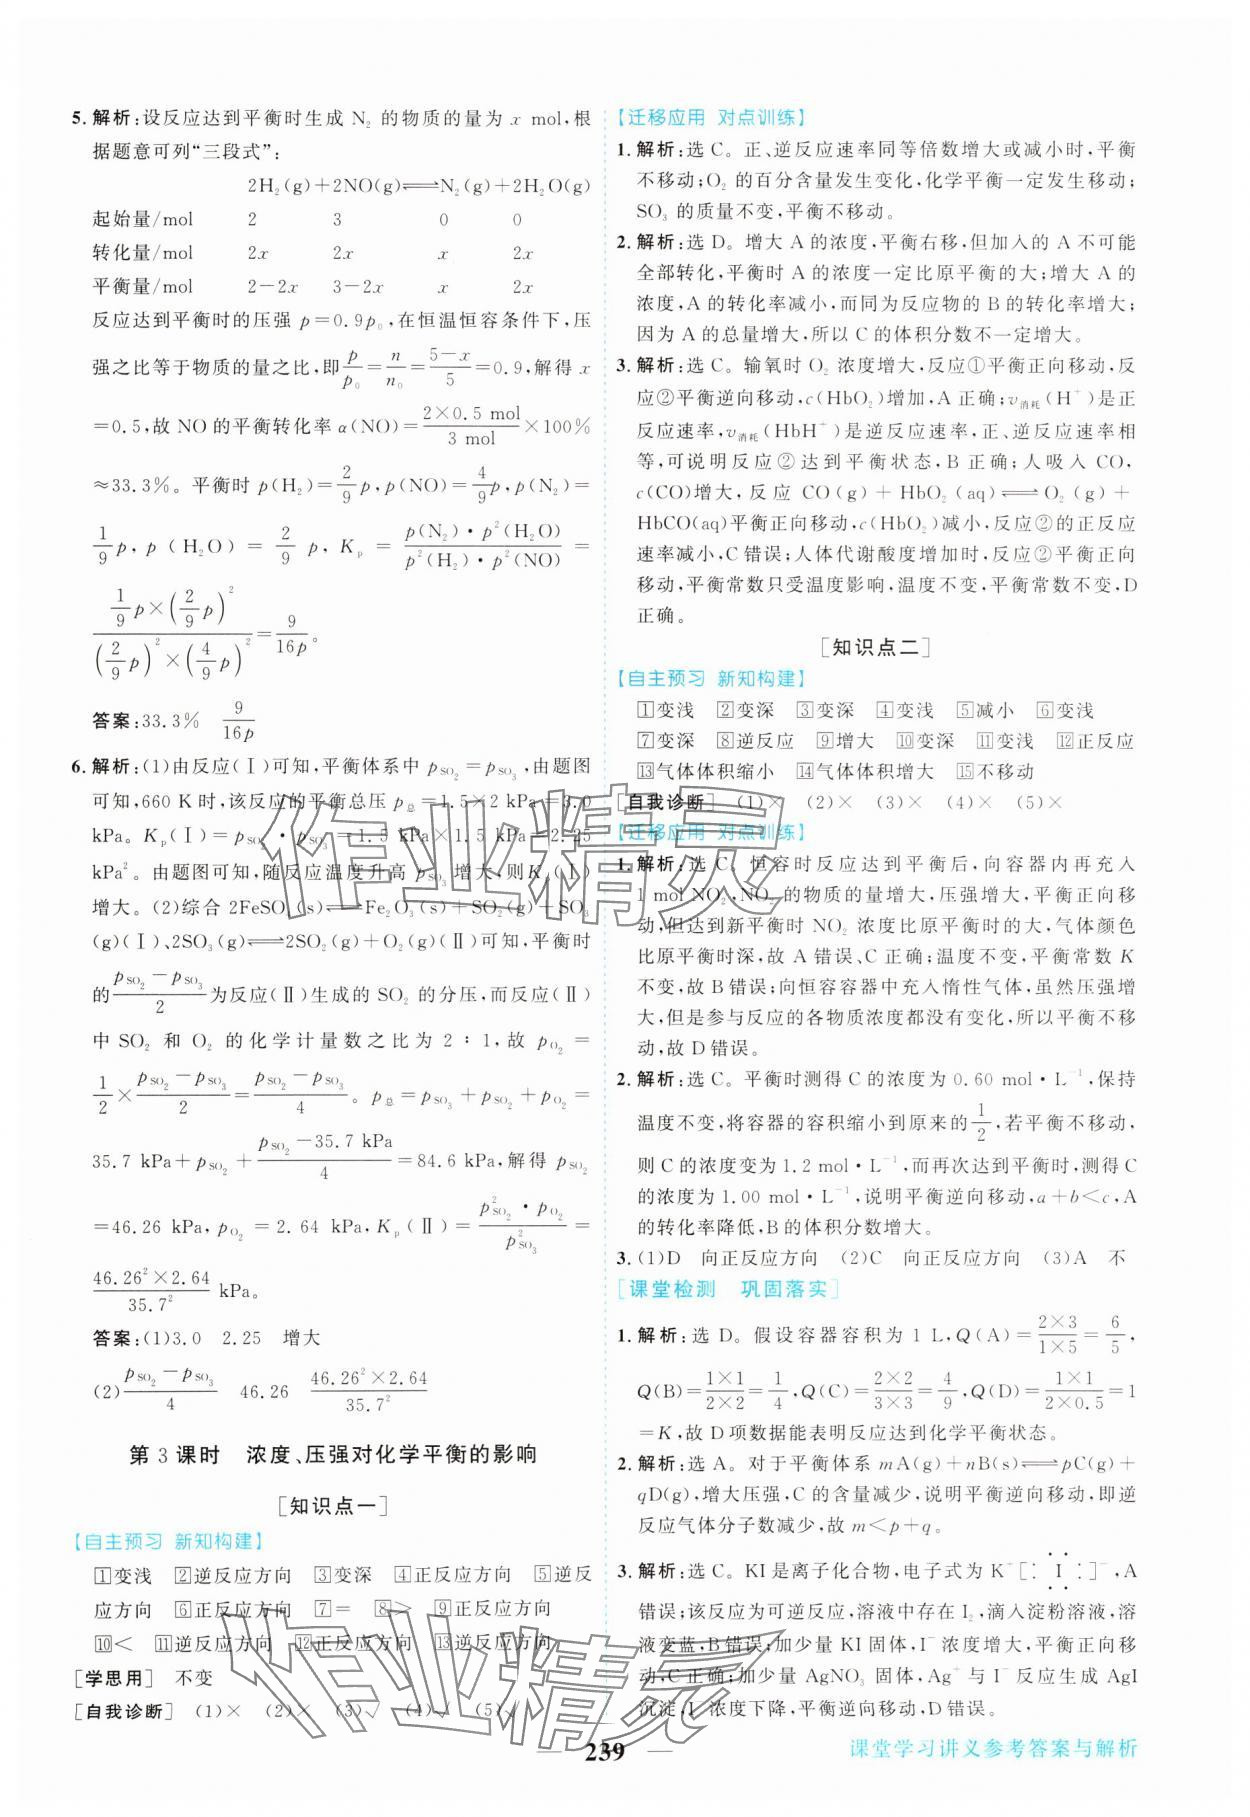 5. 解析:设反应达到平衡时生成 N₂ 的物质的量为 x mol,根
据题意可列“三段式”:
2H₂(g)+2NO(g)⇌N₂(g)+2H₂O(g)
起始量/mol 2 3 0 0
转化量/mol 2x 2x x 2x
平衡量/mol 2－2x 3－2x x 2x
反应达到平衡时的压强 p＝0.9p₀,在恒温恒容条件下,压
强之比等于物质的量之比,即p/p₀＝n/n₀＝(5－x)/5＝0.9,解得 x
＝0.5,故 NO 的平衡转化率 α(NO)＝(2×0.5 mol)/(3 mol)×100%
≈33.3%。平衡时 p(H₂)＝2/9 p,p(NO)＝4/9 p,p(N₂)＝
1/9 p,p(H₂O)＝2/9 p,Kₚ＝(p(N₂)·p²(H₂O))/(p²(H₂)·p²(NO))＝
(1/9 p×(2/9 p)²)/((2/9 p)²×(4/9 p)²)＝9/(16p)。
答案:33.3% 9/(16p)
6. 解析:(1)由反应(Ⅰ)可知,平衡体系中 p SO₂＝p SO₃,由题图
可知,660 K 时,该反应的平衡总压 p总＝1.5×2 kPa＝3.0
kPa。Kₚ(Ⅰ)＝p SO₂·p SO₃＝1.5 kPa×1.5 kPa＝2.25
kPa²。由题图可知,随反应温度升高 p SO₃ 增大,则Kₚ(Ⅰ)
增大。(2)综合 2FeSO₄(s)⇌Fe₂O₃(s)+SO₂(g)+SO₃
(g)(Ⅰ)、2SO₃(g)⇌2SO₂(g)+O₂(g)(Ⅱ)可知,平衡时
的(p SO₂－p SO₃)/2为反应(Ⅱ)生成的 SO₂ 的分压,而反应(Ⅱ)
中 SO₂ 和 O₂ 的化学计量数之比为 2∶1,故 p O₂＝
1/2×(p SO₂－p SO₃)/2＝(p SO₂－p SO₃)/4。p总＝p SO₃＋p SO₂＋p O₂＝
35.7 kPa＋p SO₂＋(p SO₂－35.7 kPa)/4＝84.6 kPa,解得 p SO₂
＝46.26 kPa,p O₂＝2.64 kPa,Kₚ(Ⅱ)＝(p² SO₂·p O₂)/(p² SO₃)＝
(46.26²×2.64)/35.7² kPa。
答案:(1)3.0 2.25 增大
(2)(p SO₂－p SO₃)/4 46.26 (46.26²×2.64)/35.7²
第 3 课时 浓度、压强对化学平衡的影响
[知识点一]
【自主预习 新知构建】
1变浅 2逆反应方向 3变深 4正反应方向 5逆反
应方向 6正反应方向 7＝ 8＞ 9正反应方向
10＜ 11逆反应方向 12正反应方向 13逆反应方向
[学思用] 不变
[自我诊断] (1)× (2)× (3)√ (4)√ (5)√
【迁移应用 对点训练】
1. 解析:选 C。正、逆反应速率同等倍数增大或减小时,平衡
不移动;O₂ 的百分含量发生变化,化学平衡一定发生移动;
SO₃ 的质量不变,平衡不移动。
2. 解析:选 D。增大 A 的浓度,平衡右移,但加入的 A 不可能
全部转化,平衡时 A 的浓度一定比原平衡的大;增大 A 的
浓度,A 的转化率减小,而同为反应物的 B 的转化率增大;
因为 A 的总量增大,所以 C 的体积分数不一定增大。
3. 解析:选 C。输氧时 O₂ 浓度增大,反应①平衡正向移动,反
应②平衡逆向移动,c(HbO₂)增加,A 正确;v消耗(H⁺)是正
反应速率,v消耗(HbH⁺)是逆反应速率,正、逆反应速率相
等,可说明反应②达到平衡状态,B 正确;人吸入 CO,
c(CO)增大,反应 CO(g)＋HbO₂(aq)⇌O₂(g)＋
HbCO(aq)平衡正向移动,c(HbO₂)减小,反应②的正反应
速率减小,C 错误;人体代谢酸度增加时,反应②平衡正向
移动,平衡常数只受温度影响,温度不变,平衡常数不变,D
正确。
[知识点二]
【自主预习 新知构建】
1变浅 2变深 3变深 4变浅 5减小 6变浅
7变深 8逆反应 9增大 10变深 11变浅 12正反应
13气体体积缩小 14气体体积增大 15不移动
[自我诊断] (1)× (2)× (3)× (4)× (5)×
【迁移应用 对点训练】
1. 解析:选 C。恒容时反应达到平衡后,向容器内再充入
1 mol NO₂,NO₂ 的物质的量增大,压强增大,平衡正向移
动,但达到新平衡时 NO₂ 浓度比原平衡时的大,气体颜色
比原平衡时深,故 A 错误、C 正确;温度不变,平衡常数 K
不变,故 B 错误;向恒容容器中充入惰性气体,虽然压强增
大,但是参与反应的各物质浓度都没有变化,所以平衡不移
动,故 D 错误。
2. 解析:选 C。平衡时测得 C 的浓度为 0.60 mol·L⁻¹,保持
温度不变,将容器的容积缩小到原来的1/2,若平衡不移动,
则 C 的浓度变为 1.2 mol·L⁻¹,而再次达到平衡时,测得 C
的浓度为 1.00 mol·L⁻¹,说明平衡逆向移动,a＋b＜c,A
的转化率降低,B 的体积分数增大。
3. (1)D 向正反应方向 (2)C 向正反应方向 (3)A 不
[课堂检测 巩固落实]
1. 解析:选 D。假设容器容积为 1 L,Q(A)＝(2×3)/(1×5)＝6/5,
Q(B)＝(1×1)/(2×2)＝1/4,Q(C)＝(2×2)/(3×3)＝4/9,Q(D)＝(1×1)/(2×0.5)＝1
＝K,故 D 项数据能表明反应达到化学平衡状态。
2. 解析:选 A。对于平衡体系 mA(g)＋nB(s)⇌pC(g)＋
qD(g),增大压强,C 的含量减少,说明平衡逆向移动,即逆
反应气体分子数减少,故 m＜p＋q。
3. 解析:选 C。KI 是离子化合物,电子式为 K⁺[:Ï̤:]⁻,A
错误;该反应为可逆反应,溶液中存在 I₂,滴入淀粉溶液,溶
液变蓝,B 错误;加少量 KI 固体,I⁻ 浓度增大,平衡正向移
动,C 正确;加少量 AgNO₃ 固体,Ag⁺ 与 I⁻ 反应生成 AgI
沉淀,I⁻ 浓度下降,平衡逆向移动,D 错误。
作业精灵
作业精灵
239
课堂学习讲义参考答案与解析